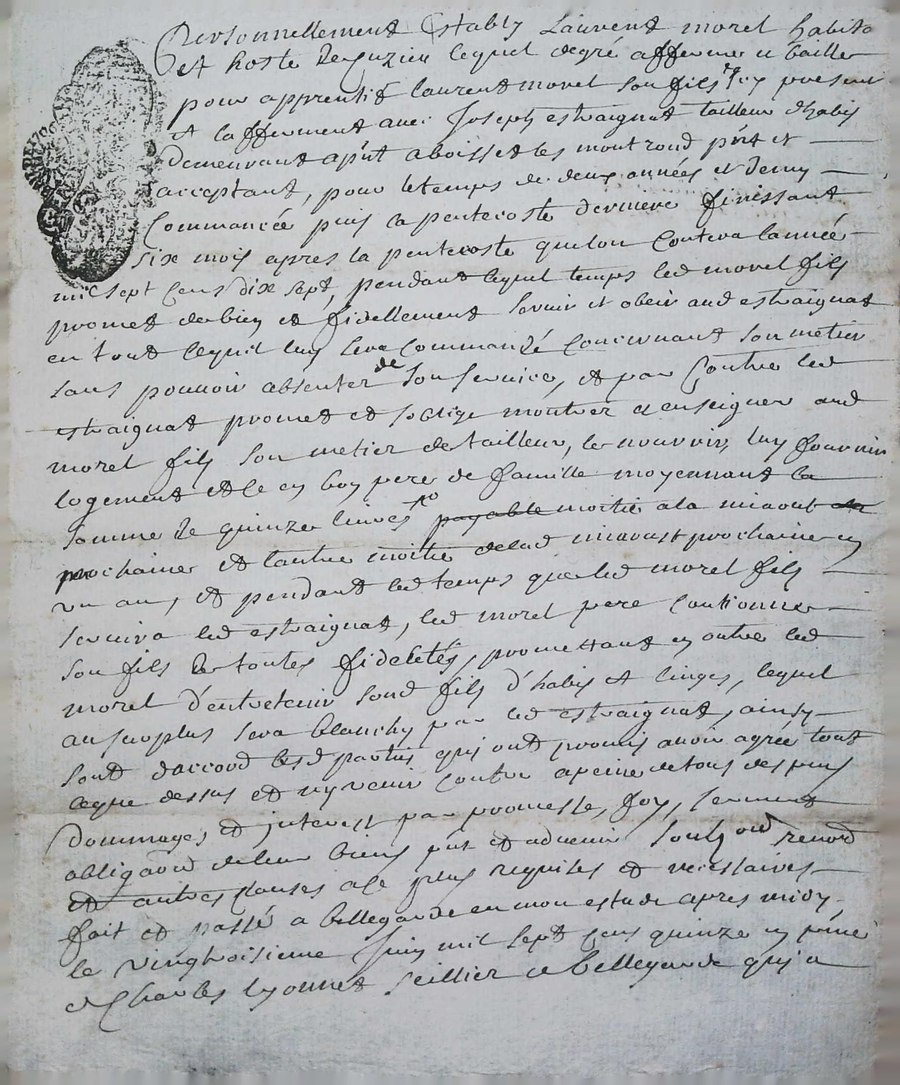 Personnellement Estably Laurent morel habitā
et hoste de Cuzieu lequel degre afferme et baille
pour apprentif laurent morel son fils icy present
et lafferment avec Joseph estraignat tailleur dhabis
demeurant apñt a boisset les montrond pñt et
acceptant, pour le temps de deux années et demy
Commancée puis la pentecoste derniere finissant
six mois apres la pentecoste que lon contera lannée
mil sept cens dix sept, pendant lequel temps led morel fils
promet de bien et fidellement servir et obeir aud estraignat
en tout cequil luy sera commandé concernant son metier
sans pouvoir absenter de son service, et par Contre led
estraignat promet et soblige montrer et enseigner aud
morel fils son metier de tailleur, le nourrir, luy fournir
logement et le en bon pere de famille moyennant la
somme de quinze livres payable moitié a la miaoust
prochaine et lautre moitié de lad miaoust prochaine en
un an, et pendant led temps que led morel fils
servira led estraignat, led morel pere cautionne
son fils de toutes fidelités, promettant en outre led
morel d'entretenir sond fils d'habis et linges, lequel
au surplus sera blanchy par led estraignat, ainsy
sont daccord lesd parties qui ont promis avoir agreé tout
ceque dessus et ny venir contre a peine de tous despens
dommages, et interest par promesse, foy, serment
obligaõn de leur biens pñt et advenir soubz renonõ
et autres clauses a ce plus requises et necessaires
fait et passé a bellegarde en mon estude apres midy
le vingtroisieme Juin mil sept cens quinze en pñce
de Charles lyonnet sellier de bellegarde qui a